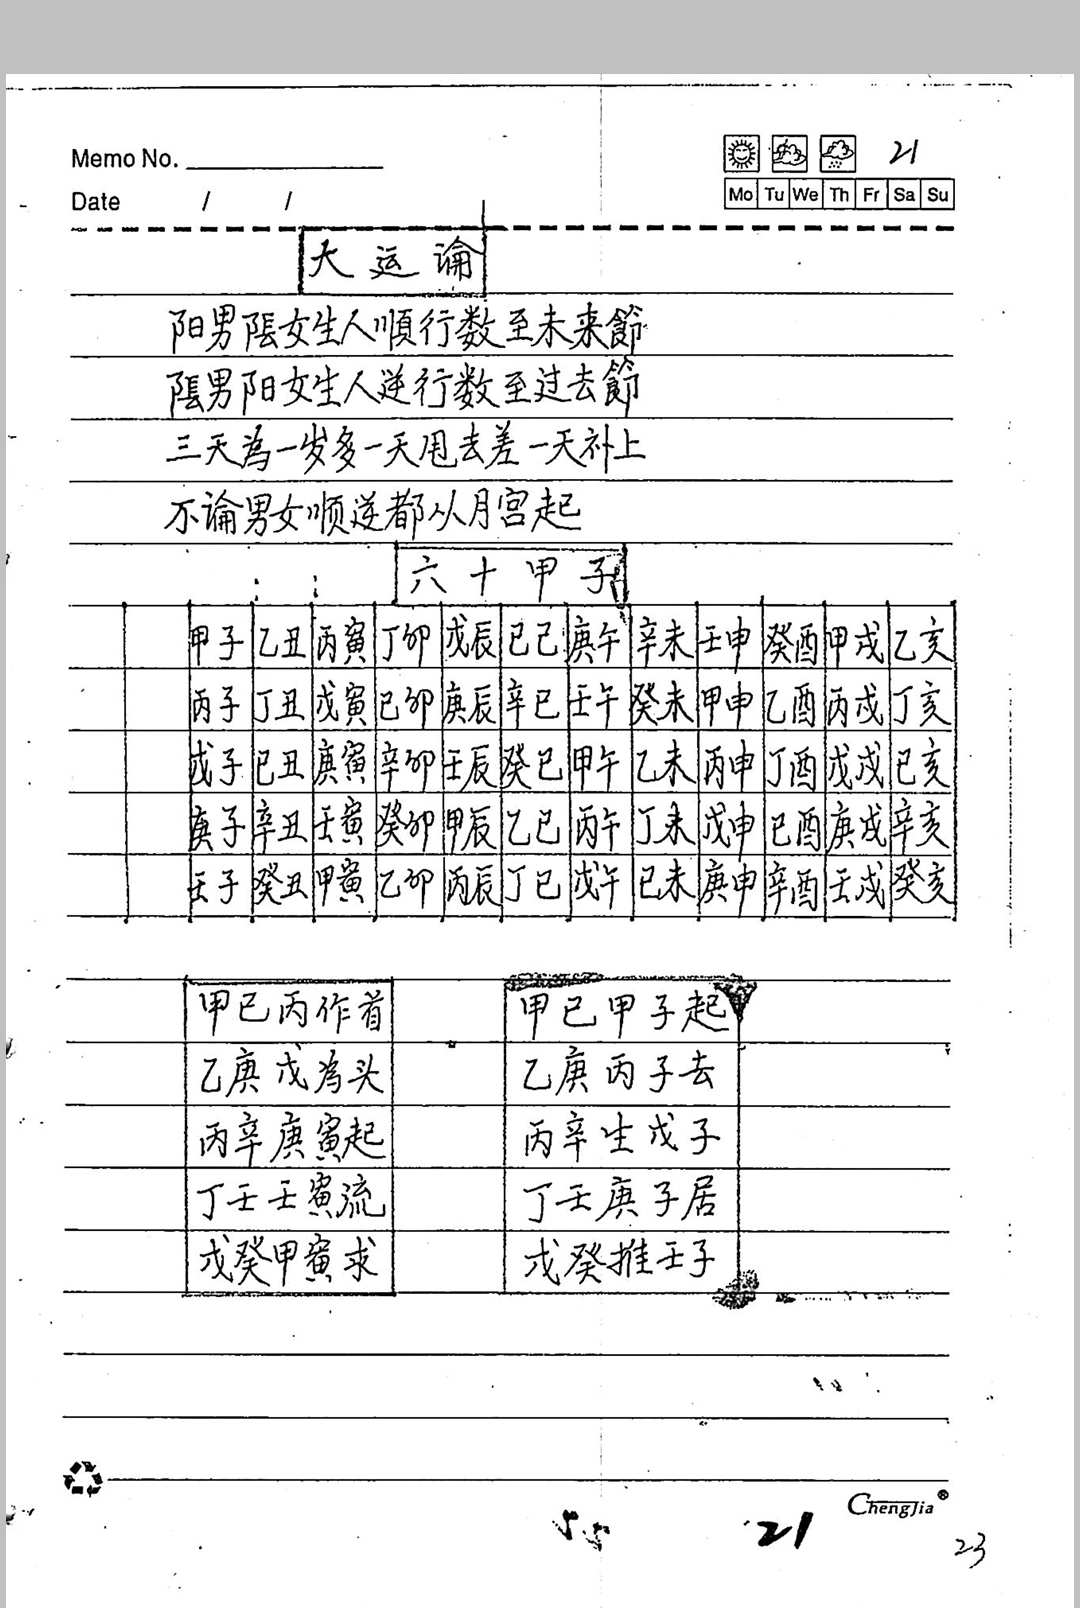 Memo No.
21
Date / /
Mo Tu We Th Fr Sa Su
大运论
阳男陰女生人順行数至未来節
陰男阳女生人逆行数至过去節
三天為一岁多一天甩去差一天补上
不论男女顺逆都从月宫起
六十甲子
甲子 乙丑 丙寅 丁卯 戊辰 已己 庚午 辛未 壬申 癸酉 甲戌 乙亥
丙子 丁丑 戊寅 已卯 庚辰 辛巳 壬午 癸未 甲申 乙酉 丙戌 丁亥
戊子 已丑 庚寅 辛卯 壬辰 癸巳 甲午 乙未 丙申 丁酉 戊戌 已亥
庚子 辛丑 壬寅 癸卯 甲辰 乙巳 丙午 丁未 戊申 已酉 庚戌 辛亥
壬子 癸丑 甲寅 乙卯 丙辰 丁巳 戊午 已未 庚申 辛酉 壬戌 癸亥
甲已丙作首
乙庚戊為头
丙辛庚寅起
丁壬壬寅流
戊癸甲寅求
甲已甲子起
乙庚丙子去
丙辛生戊子
丁壬庚子居
戊癸推壬子
ChengJia®
21
23